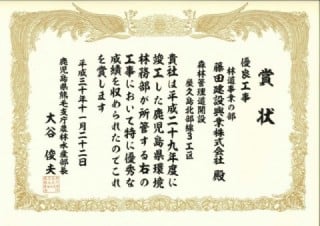 賞状
優良工事
林道事業の部
藤田建設興業株式会社 殿
森林管理道開設
屋久島北部線3工区
貴社は平成二十九年度に
竣工した鹿児島県環境
林務部が所管する右の
工事において特に優秀な
成績を収められたのでこれ
を賞します
平成三十年十一月二十二日
鹿児島県熊毛支庁農林水産部長
大谷俊夫